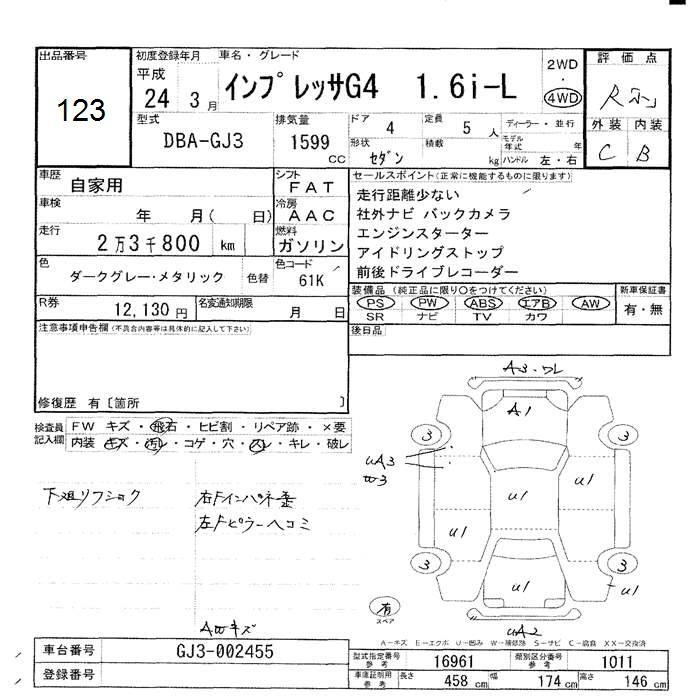 出品番号
123
初度登録年月
平成
24 3月
車名・グレード
インプレッサG4 1.6i-L
2WD
・
4WD
評価点
R
外装 内装
C B
型式
DBA-GJ3
排気量
1599
CC
ドア
4
定員
5 人
形状
セダン
積載
kg
ディーラー・並行
モデル年式 年
ハンドル 左・右
車歴
自家用
シフト
FAT
車検
年 月( 日)
冷房
AAC
走行
2万3千800 km
燃料
ガソリン
色
ダークグレー・メタリック
色替
色コード
61K
R券
12,130円
名変通知期限
月 日
セールスポイント(正常に機能するものに限ります)
走行距離少ない
社外ナビ バックカメラ
エンジンスターター
アイドリングストップ
前後ドライブレコーダー
装備品 (純正品に限り○をつけてください)
PS PW ABS エアB AW
SR ナビ TV カワ
新車保証書
有・無
後日品
注意事項申告欄(不具合内容等は具体的に記入して下さい)
修復歴 有〔箇所 〕
検査員記入欄
FW キズ・飛石・ヒビ割・リペア跡・×要
内装 キズ・汚レ・コゲ・穴・スレ・キレ・破レ
右Fインパネ歪
左Fピラーヘコミ
キズ
A3・ワレ
A1
3
3
UA3
W3
U1
U1
U1
3
3
U1
U1
UA2
有
スペア
A-キズ E-エクボ U-凹み W-補修跡 S-サビ C-腐食 XX-交換済
車台番号
GJ3-002455
登録番号
型式指定番号
参考
16961
類別区分番号
参考
1011
車庫証明用
参考
長さ
458 cm
幅
174 cm
高さ
146 cm